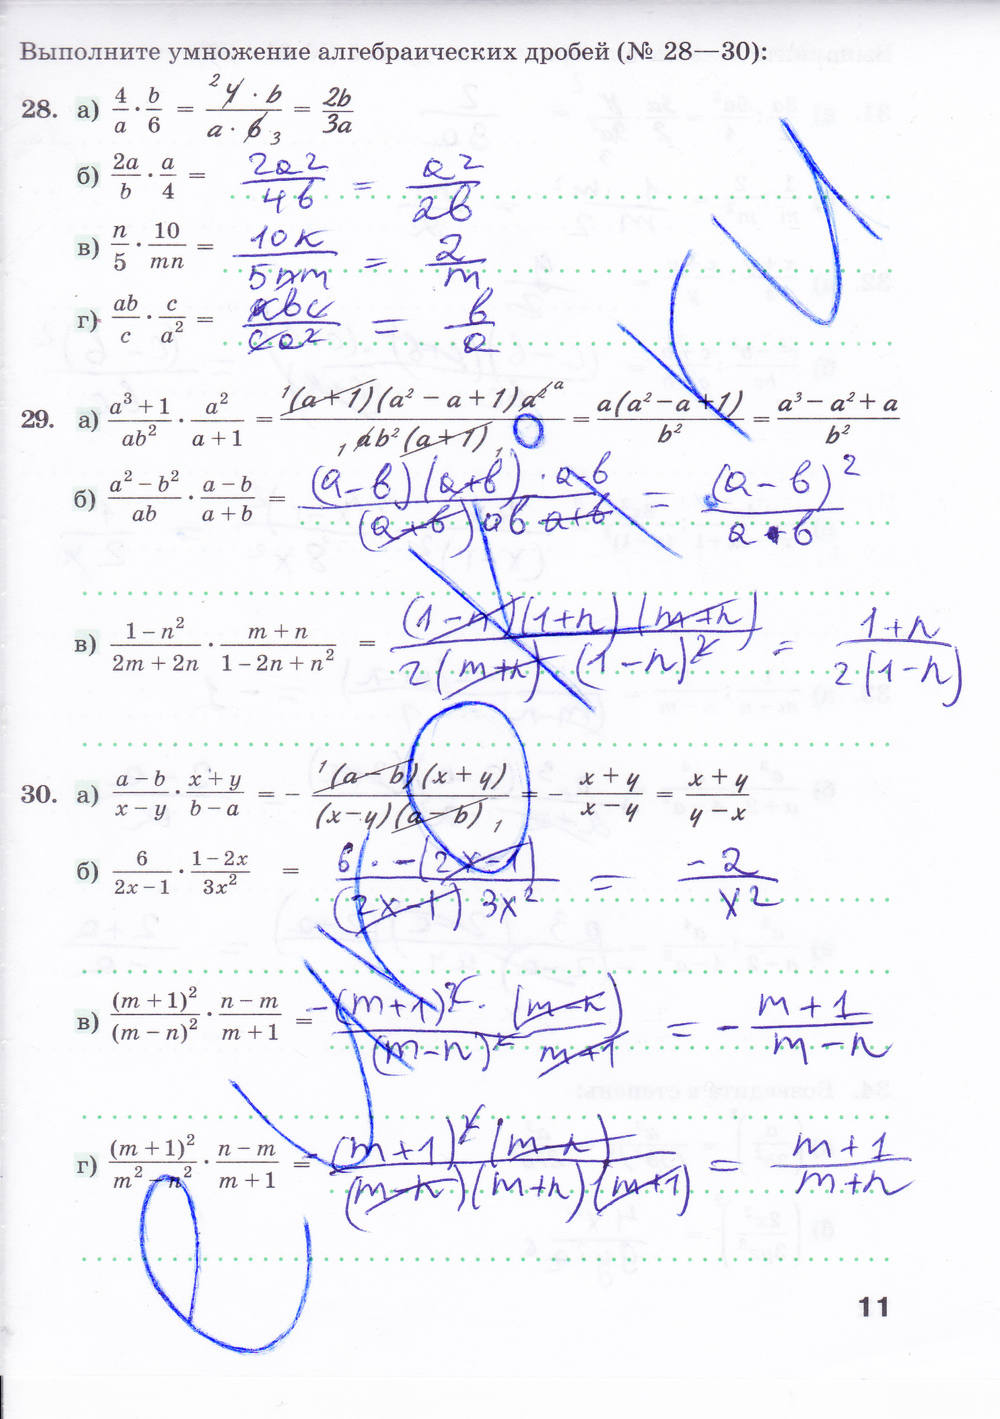 Выполните умножение алгебраических дробей (№ 28—30):
28. а) 4/a · b/6 = 4 · b / a · 6 = 2b/3a
б) 2a/b · a/4 = 2a²/4b = a²/2b
в) n/5 · 10/mn = 10n/5nm = 2/m
г) ab/c · c/a² = abc/ca² = b/a
29. а) a³+1/ab² · a²/a+1 = (a+1)(a²−a+1)a²/ab²(a+1) = a(a²−a+1)/b² = a³−a²+a/b²
б) a²−b²/ab · a−b/a+b = (a−b)(a+b) · a−b/(a+b) ab a+b = (a−b)²/a·b
в) 1−n²/2m+2n · m+n/1−2n+n² = (1−n)(1+n)(m+n)/2(m+n)·(1−n)² = 1+n/2(1−n)
30. а) a−b/x−y · x+y/b−a = − (a−b)(x+y)/(x−y)(a−b) = − x+y/x−y = x+y/y−x
б) 6/2x−1 · 1−2x/3x² = 6·−(2x−1)/(2x−1)3x² = −2/x²
в) (m+1)²/(m−n)² · n−m/m+1 = −(m+1)²·(m−n)/(m−n)² m+1 = − m+1/m−n
г) (m+1)²/m²−n² · n−m/m+1 = −(m+1)²(m−n)/(m−n)(m+n)(m+1) = m+1/m+n
11